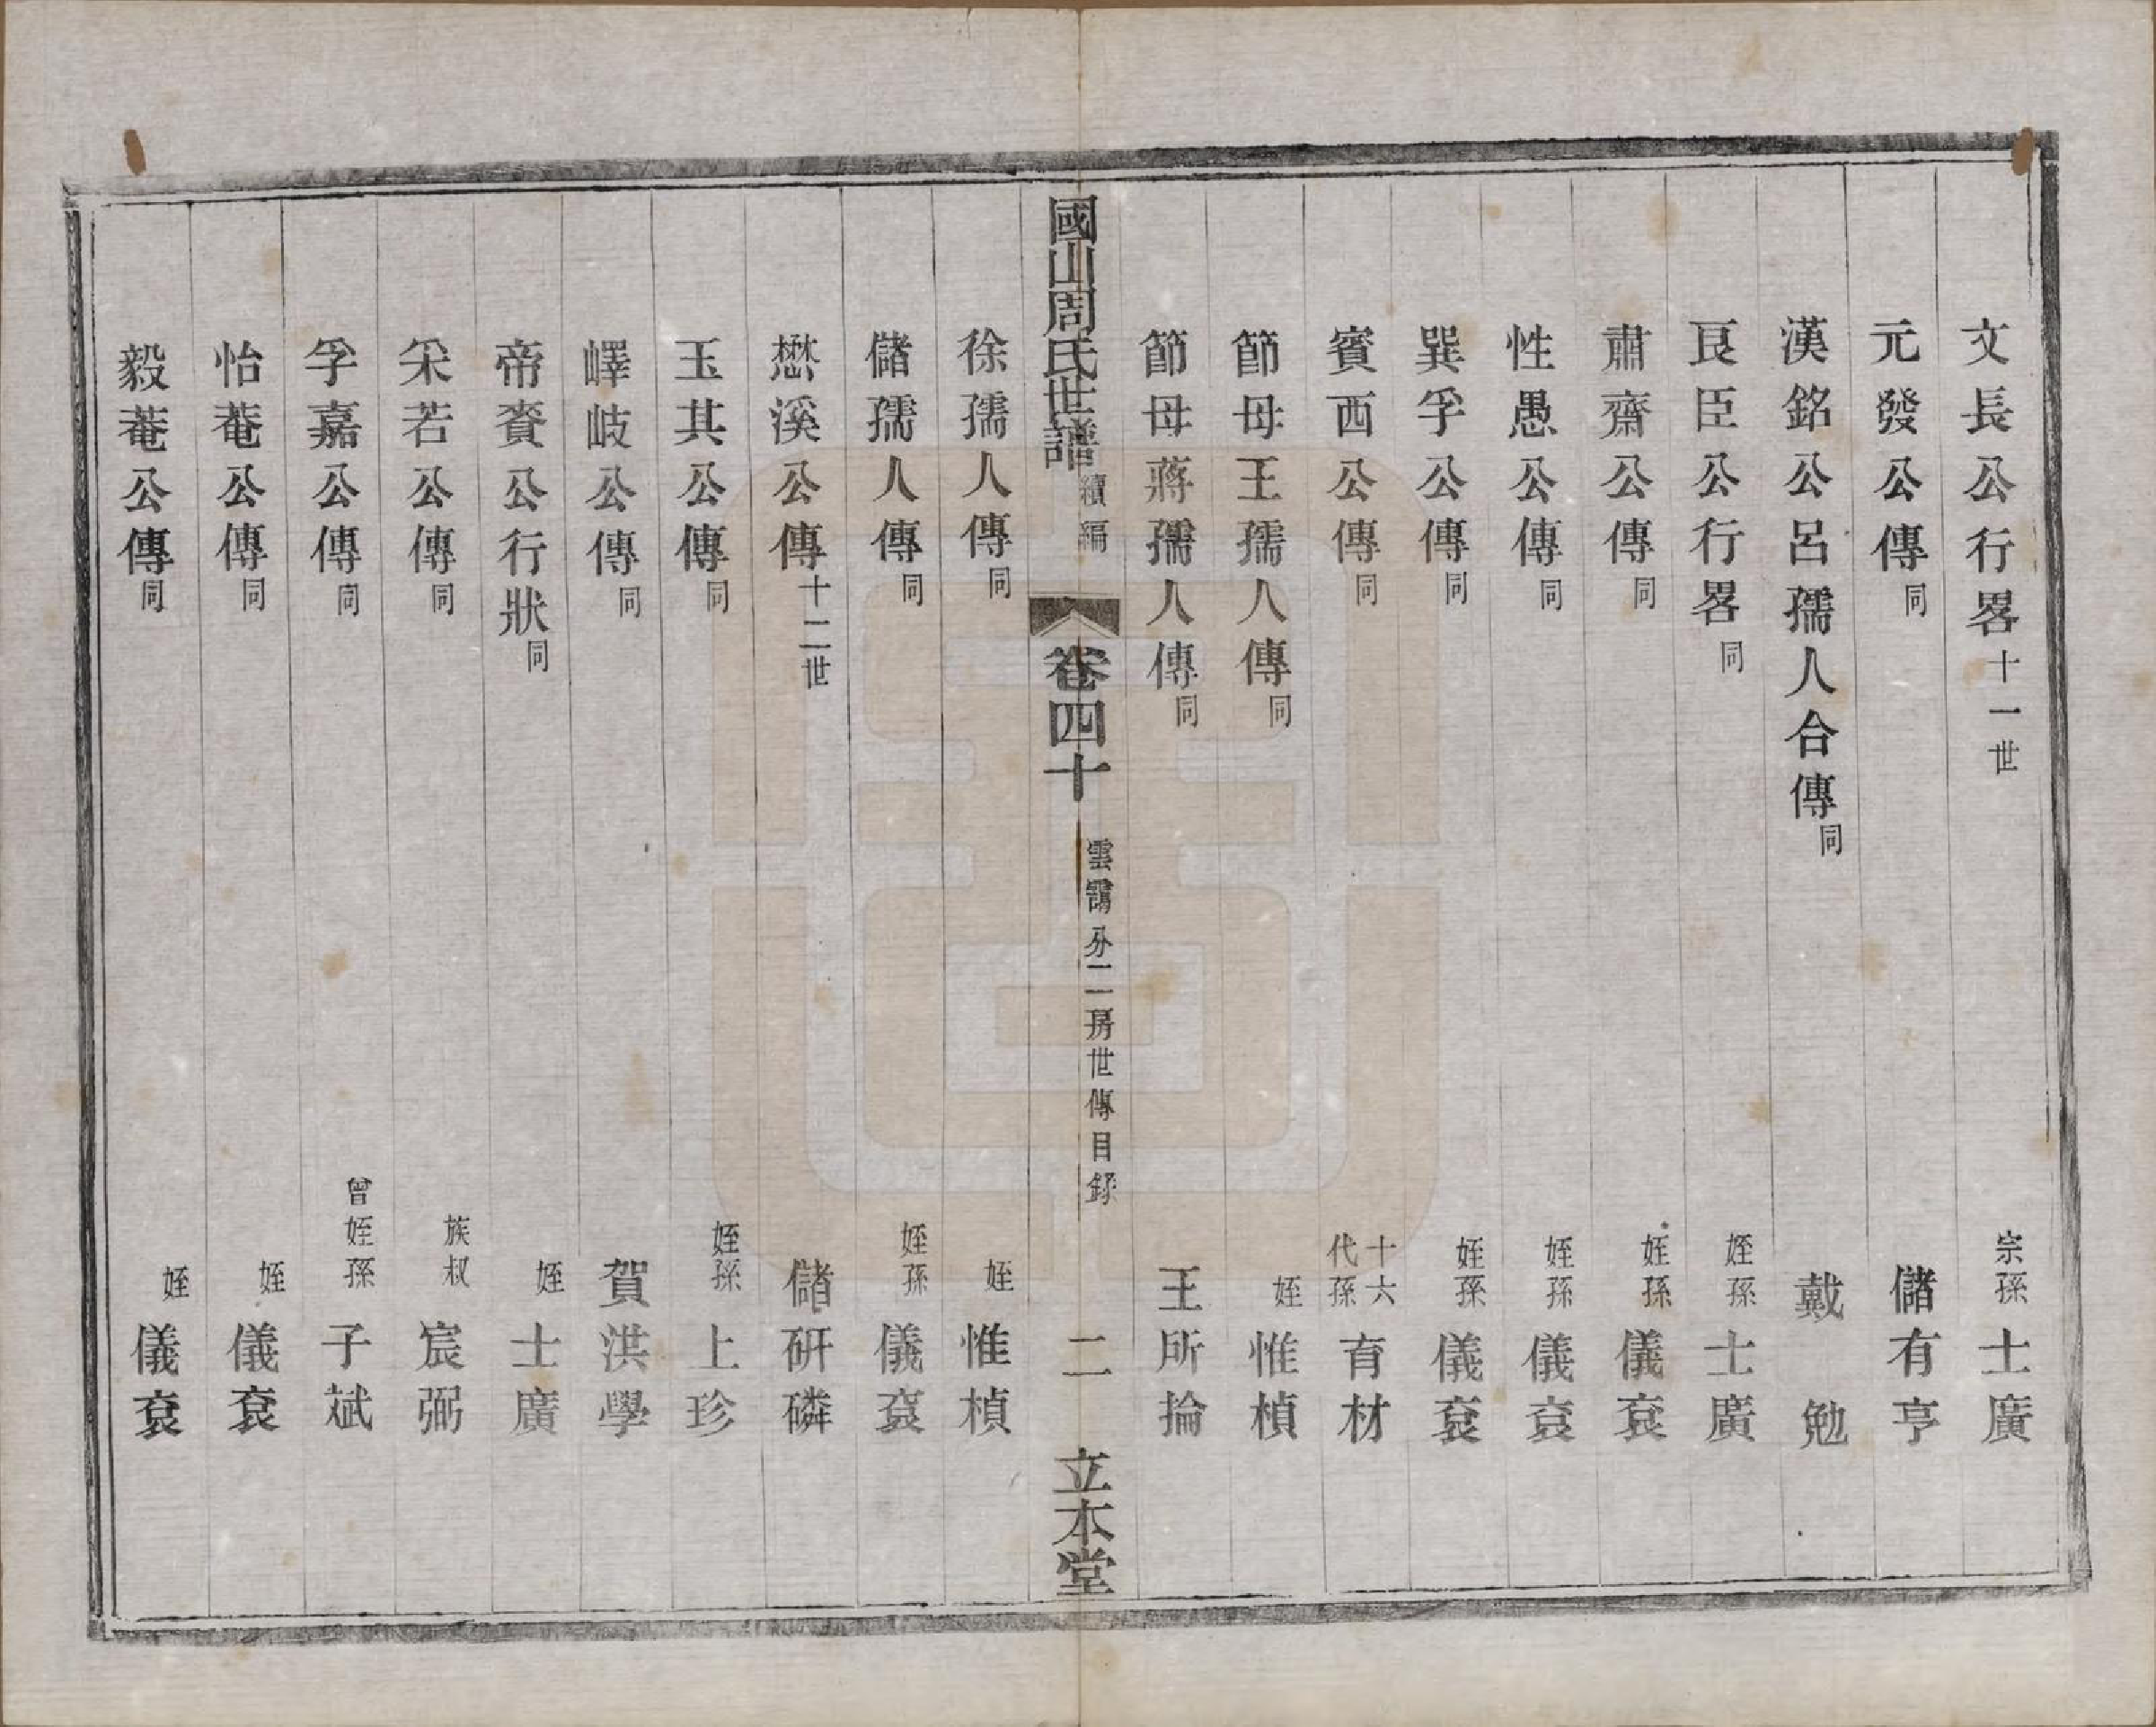 文長公行畧十一世　宗孫士廣
元發公傳同　儲有亨
漢銘公呂孺人合傳同　戴勉
良臣公行畧同　姪孫士廣
肅齋公傳同　姪孫儀袞
性愚公傳同　姪孫儀袞
巽孚公傳同　姪孫儀袞
賓西公傳同　十六代孫育材
節母王孺人傳同　姪惟楨
節母蔣孺人傳同　王所掄
國山周氏世譜續編　卷四十　雲鶚分二房世傳目錄　二　立本堂
徐孺人傳同　姪惟楨
儲孺人傳同　姪孫儀袞
懋溪公傳十二世　儲研磷
玉其公傳同　姪孫上珍
嶧岐公傳同　賀洪學
帝賚公行狀同　姪士廣
采若公傳同　族叔宸弼
孚嘉公傳同　曾姪孫子斌
怡菴公傳同　姪儀袞
毅菴公傳同　姪儀袞